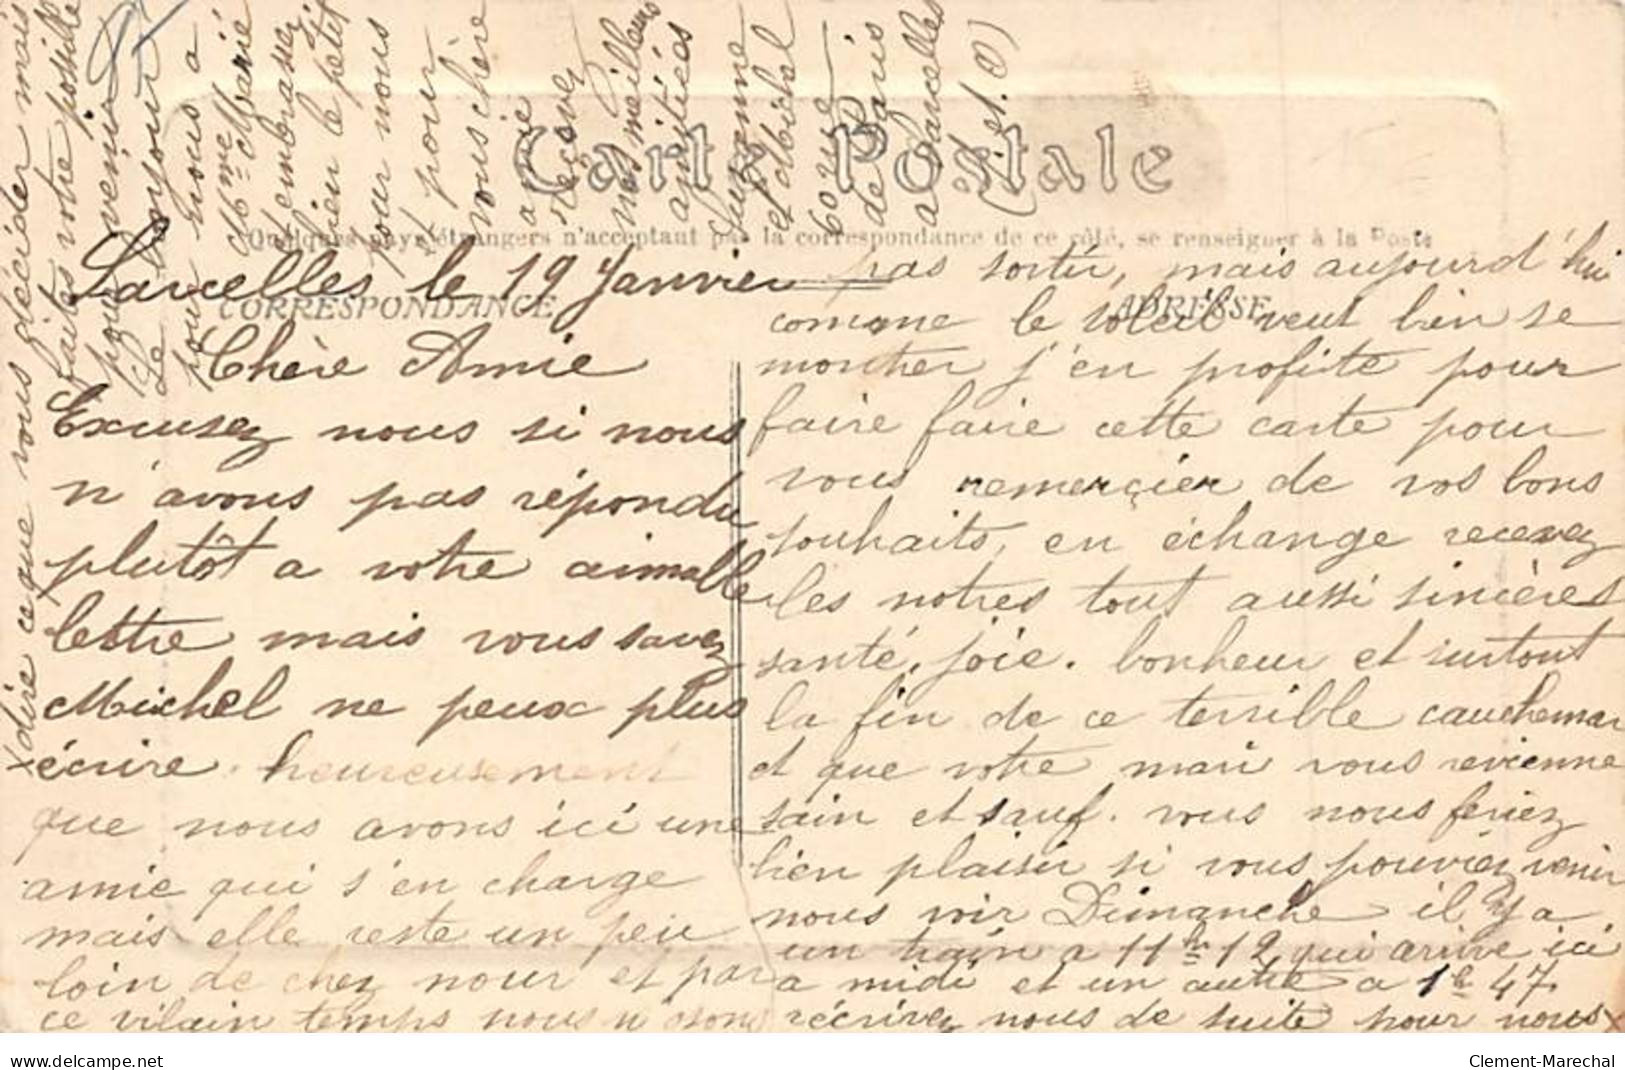 Carte Postale
Quelques pays étrangers n'acceptant pas la correspondance de ce côté, se renseigner à la Poste
CORRESPONDANCE
ADRESSE
Sarcelles le 19 Janvier
Chère Amie
Excusez nous si nous
n'avons pas répondu
plutôt a votre aimable
lettre mais vous savez
Michel ne peux plus
écrire. heureusement
que nous avons ici une
amie qui s'en charge
mais elle reste un peu
loin de chez nous et par
ce vilain temps nous n'osons
pas sortir, mais aujourd'hui
comme le soleil veut bien se
montrer j'en profite pour
faire faire cette carte pour
vous remerçier de vos bons
souhaits, en échange recevez
les notres tout aussi sincères
santé, joie. bonheur et surtout
la fin de ce terrible cauchemar
et que votre mari vous revienne
sain et sauf. vous nous feriez
bien plaisir si vous pouviez venir
nous voir Dimanche il y a
un train a 11h 12 qui arive ici
a midi et un autre a 1h 47.
récrivez nous de suite pour nous x
x dire ce que vous décider mais
faites votre possible
pour venir
Le bonjour
pour nous a
Mme Marie
et embrassez
bien le petit
pour nous
et pour
vous chère
amie
recevez
nos meilleurs
amitiées
Suzanne
et Michel
60 rue
de Paris
a Sarcelles
(S. et. O)
delcampe.net
Clement-Marechal